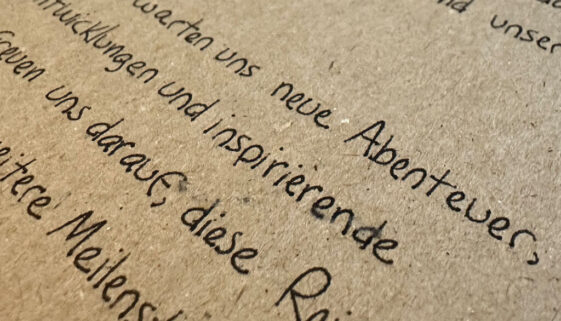 unser
warten uns neue Abenteuer,
twicklungen und inspirierende
reuen uns darauf, diese
itere Meilens